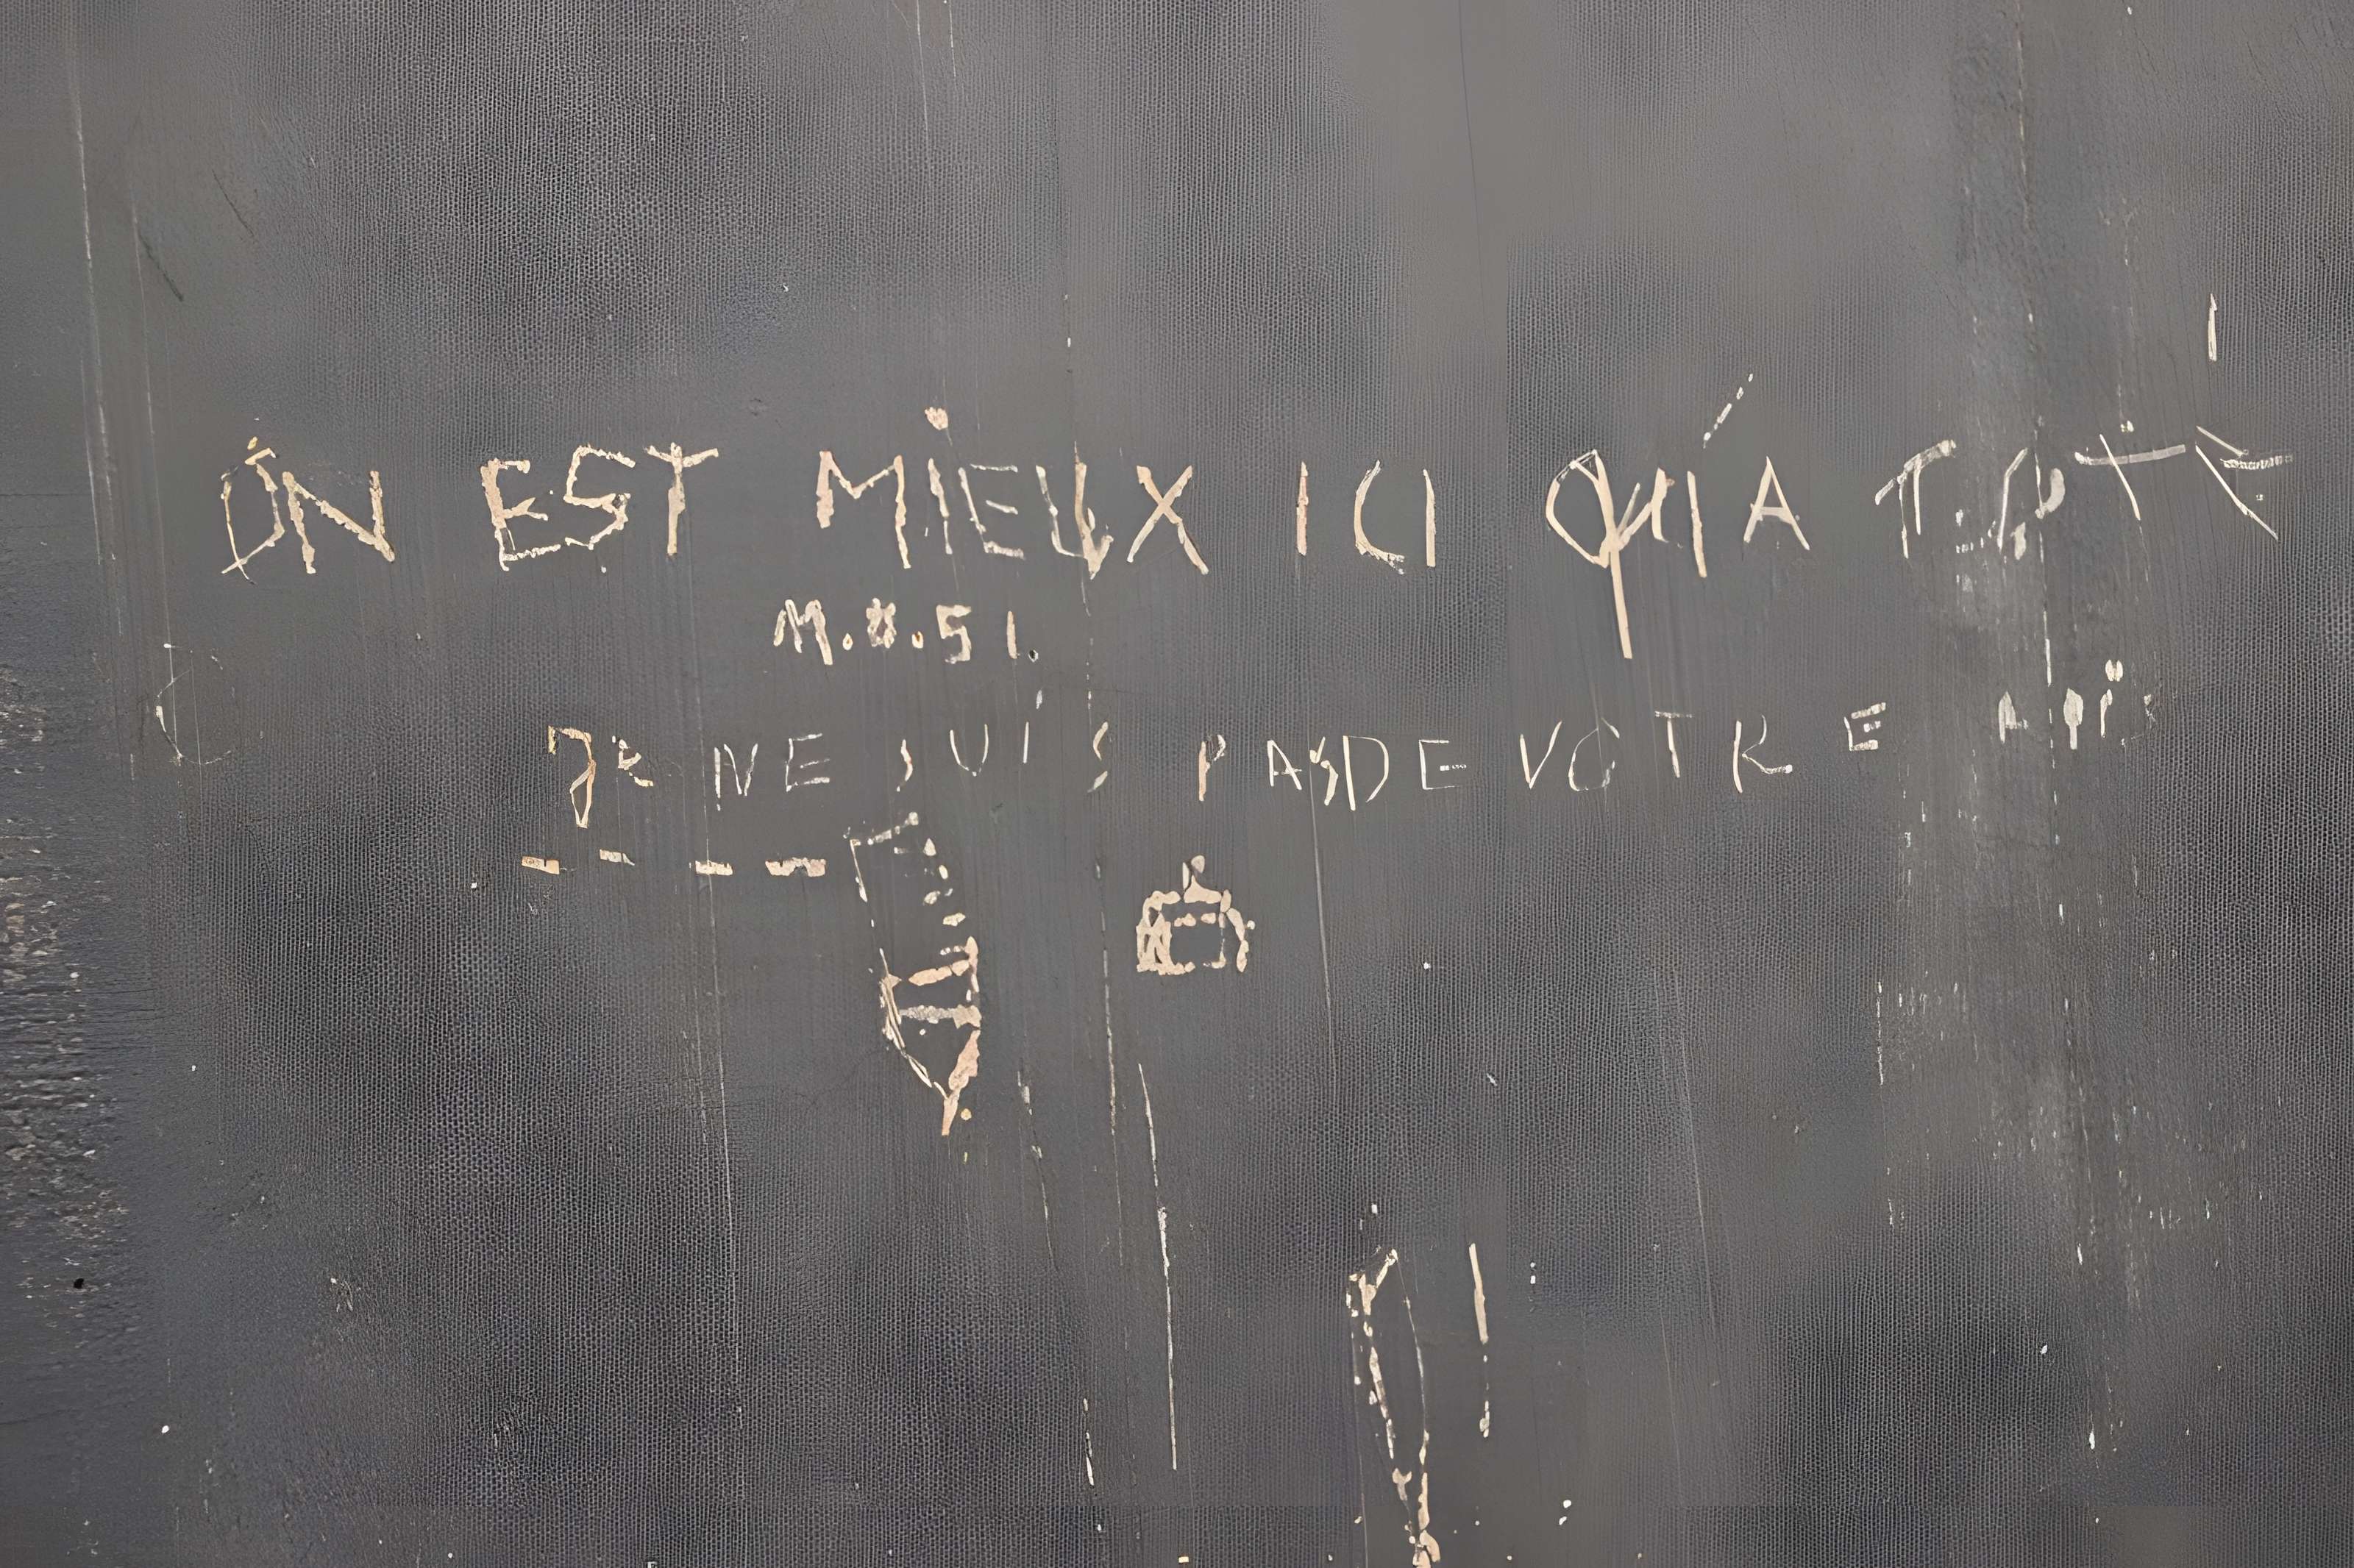 ON EST MIEUX ICI QUÍA
M.8.51.
JE NE SUIS PAS DE VOTRE